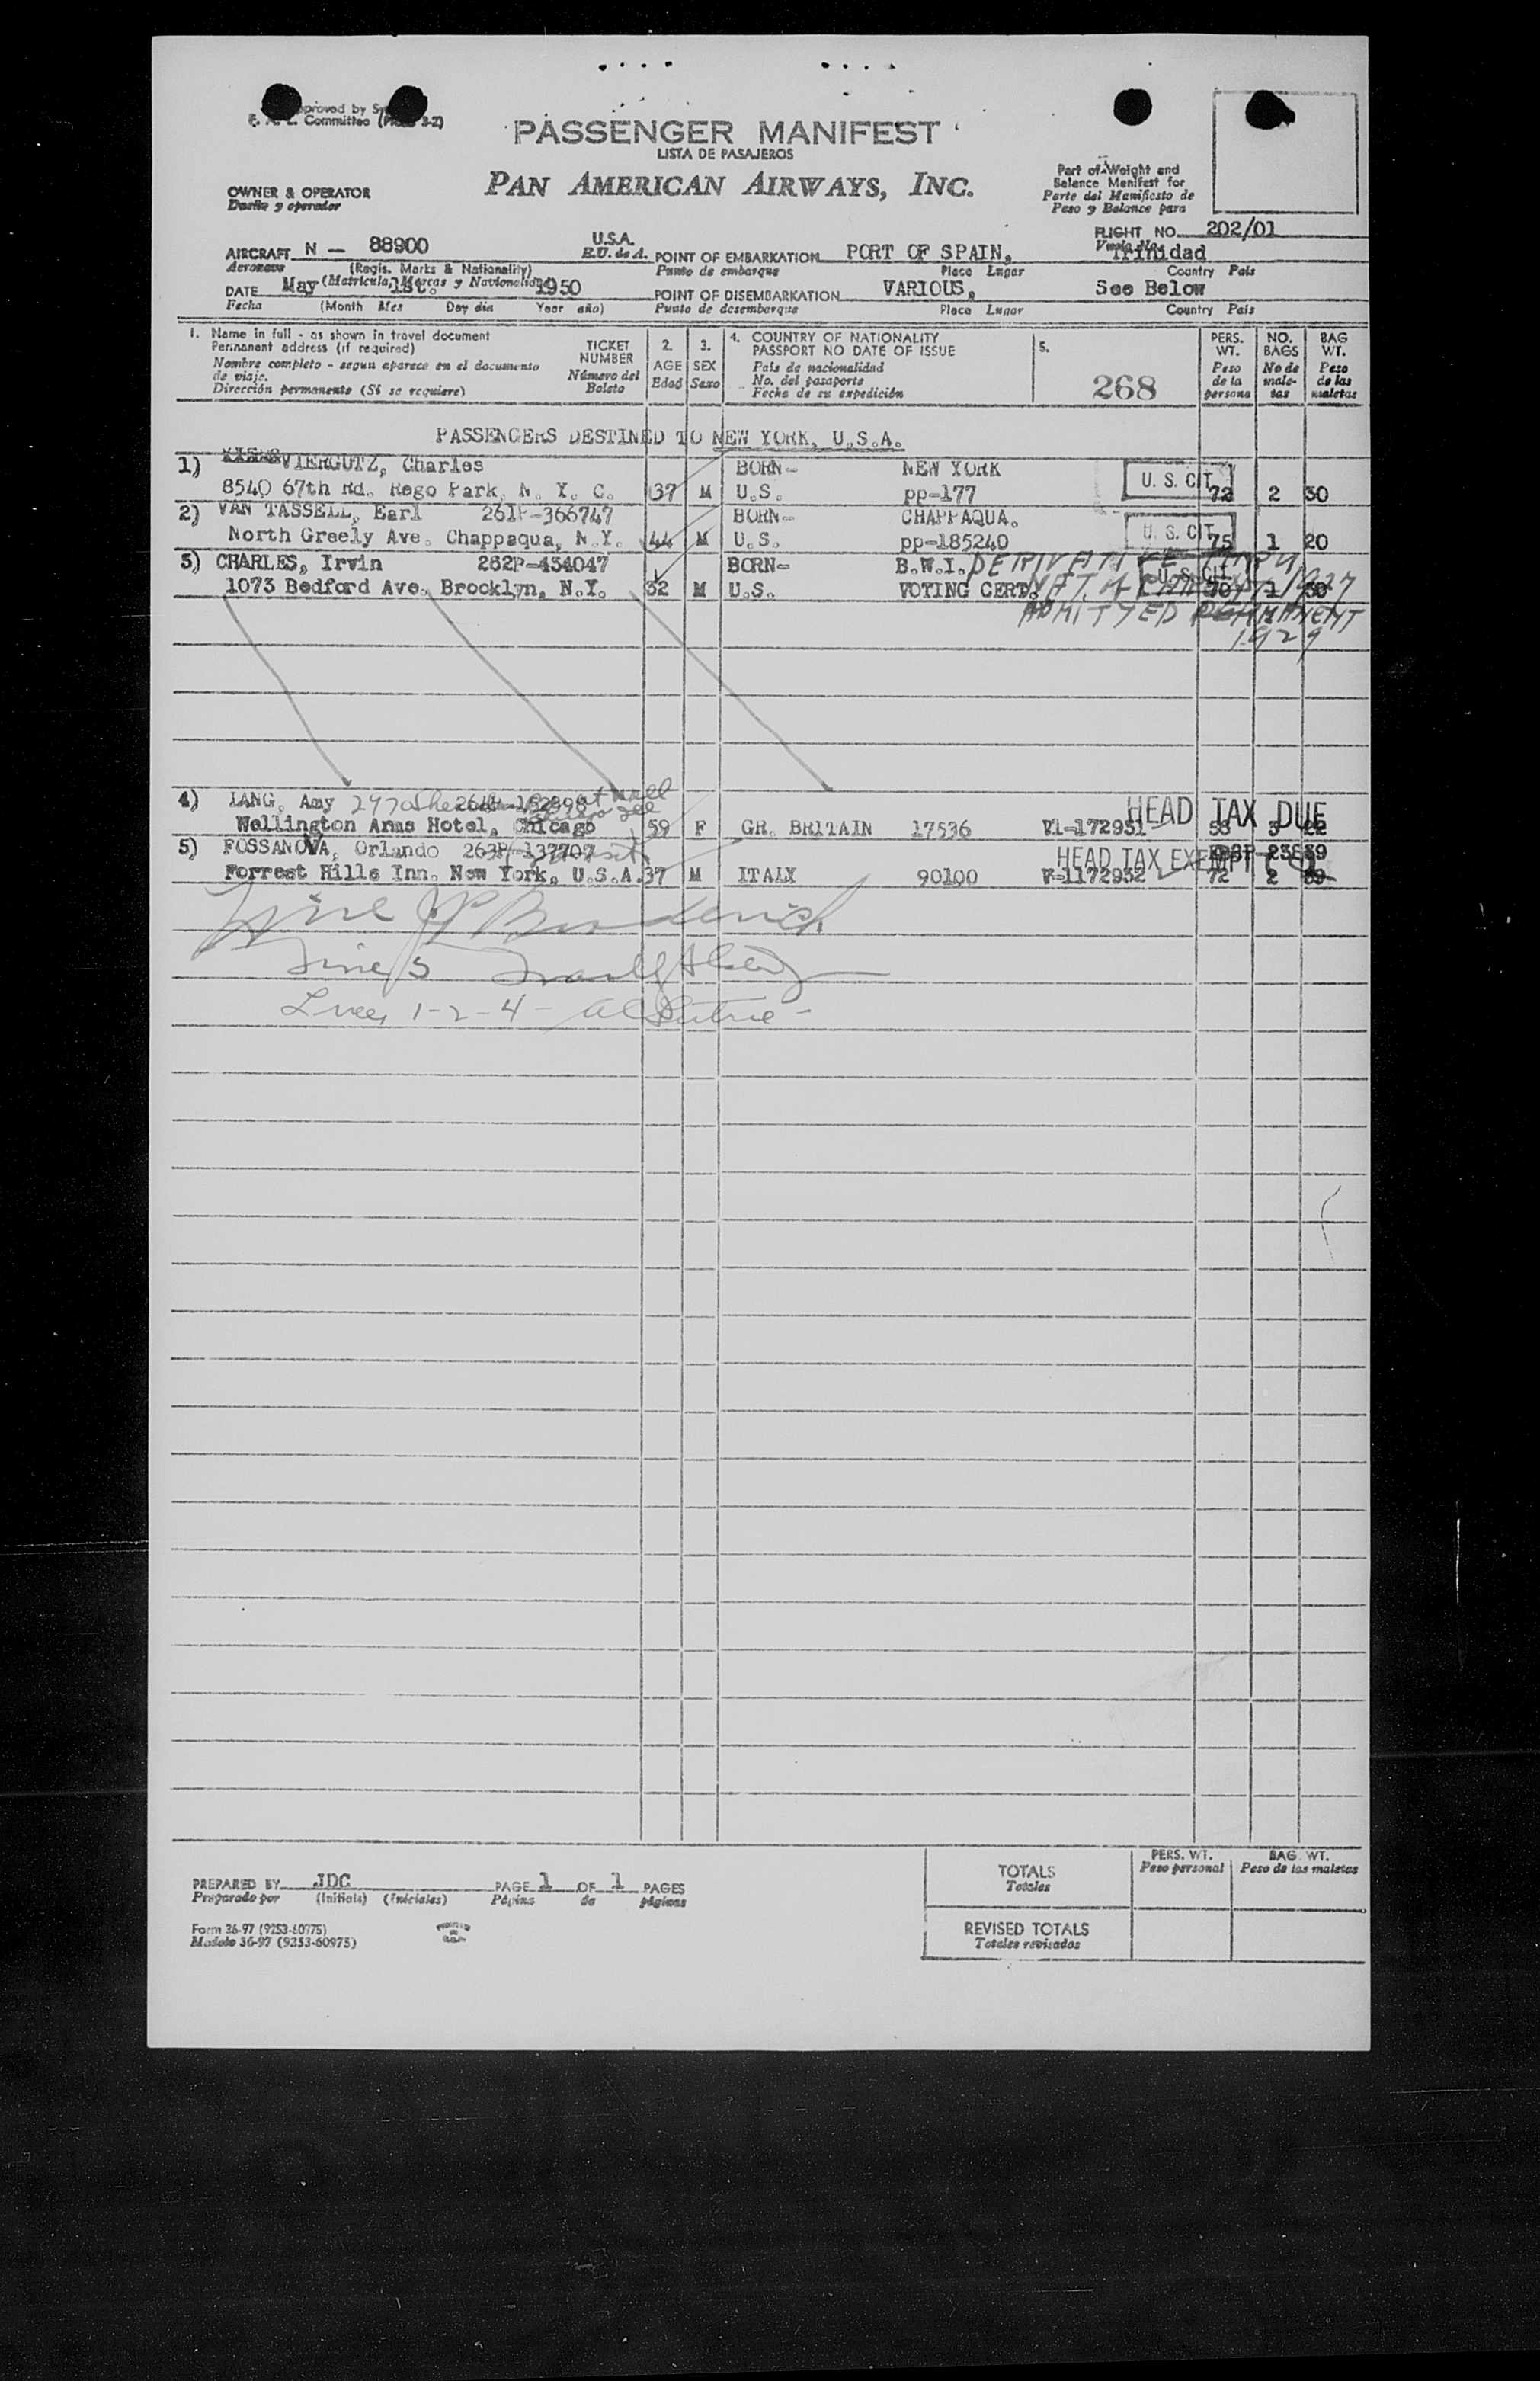 Approved by
Committee
PASSENGER MANIFEST
LISTA DE PASAJEROS
PAN AMERICAN AIRWAYS, INC.
Part of Weight and
Balance Manifest for
Parte del Manifiesto de
Peso y Balance para
OWNER & OPERATOR
Dueño y operador
FLIGHT NO. 202/01
Vuelo No.
AIRCRAFT N — 88900 U.S.A. POINT OF EMBARKATION PORT OF SPAIN, Trinidad
Aeronave (Regis. Marks & Nationality) E.U. de A. Punto de embarque Place Lugar Country País
(Matricula, Marcas y Nacionalidad)
DATE May 1st. 1950 POINT OF DISEMBARKATION VARIOUS, See Below
Fecha (Month Mes Day día Year año) Punto de desembarque Place Lugar Country País
1. Name in full - as shown in travel document
Permanent address (if required)
Nombre completo - segun aparece en el documento
de viaje.
Dirección permanente (Si se requiere)
TICKET
NUMBER
Número del
Boleto
2.
AGE
Edad
3.
SEX
Sexo
4. COUNTRY OF NATIONALITY
PASSPORT NO DATE OF ISSUE
País de nacionalidad
No. del pasaporte
Fecha de su expedición
5.
268
PERS.
WT.
Peso
de la
persona
NO.
BAGS
No de
male-
tas
BAG
WT.
Peso
de las
maletas
PASSENGERS DESTINED TO NEW YORK, U.S.A.
1) VIERGUTZ, Charles BORN- NEW YORK
8540 67th Rd. Rego Park, N. Y. C. 37 M U.S. pp-177 U. S. CIT. 72 2 30
2) VAN TASSELL, Earl 261P-366747 BORN- CHAPPAQUA.
North Greely Ave. Chappaqua, N.Y. 44 M U.S. pp-185240 U. S. CIT. 75 1 20
3) CHARLES, Irvin 262P-434047 BORN- B.W.I. DERIVATIVE
1073 Bedford Ave. Brooklyn, N.Y. 32 M U.S. VOTING CERT. U. S. CIT. 70 1 30
1927
ADMITTED PERMANENT
1929
4) LANG, Amy 2970 HEAD TAX DUE
Wellington Arms Hotel, Chicago 59 F GR. BRITAIN 17536 V1-172931 3 22
5) FOSSANOVA, Orlando 263P-137707 HEAD TAX EXEMPT
Forrest Hills Inn. New York, U.S.A. 37 M ITALY 90100 V-1172932 72 2 39
Line 5
Lines 1-2-4 -
PREPARED BY JDC PAGE 1 OF 1 PAGES
Preparado por (Initials) (Iniciales) Página de páginas
Form 36-97 (9253-60975)
Modelo 36-97 (9253-60975)
TOTALS
Totales
PERS. WT.
Peso personal
BAG. WT.
Peso de las maletas
REVISED TOTALS
Totales revisados